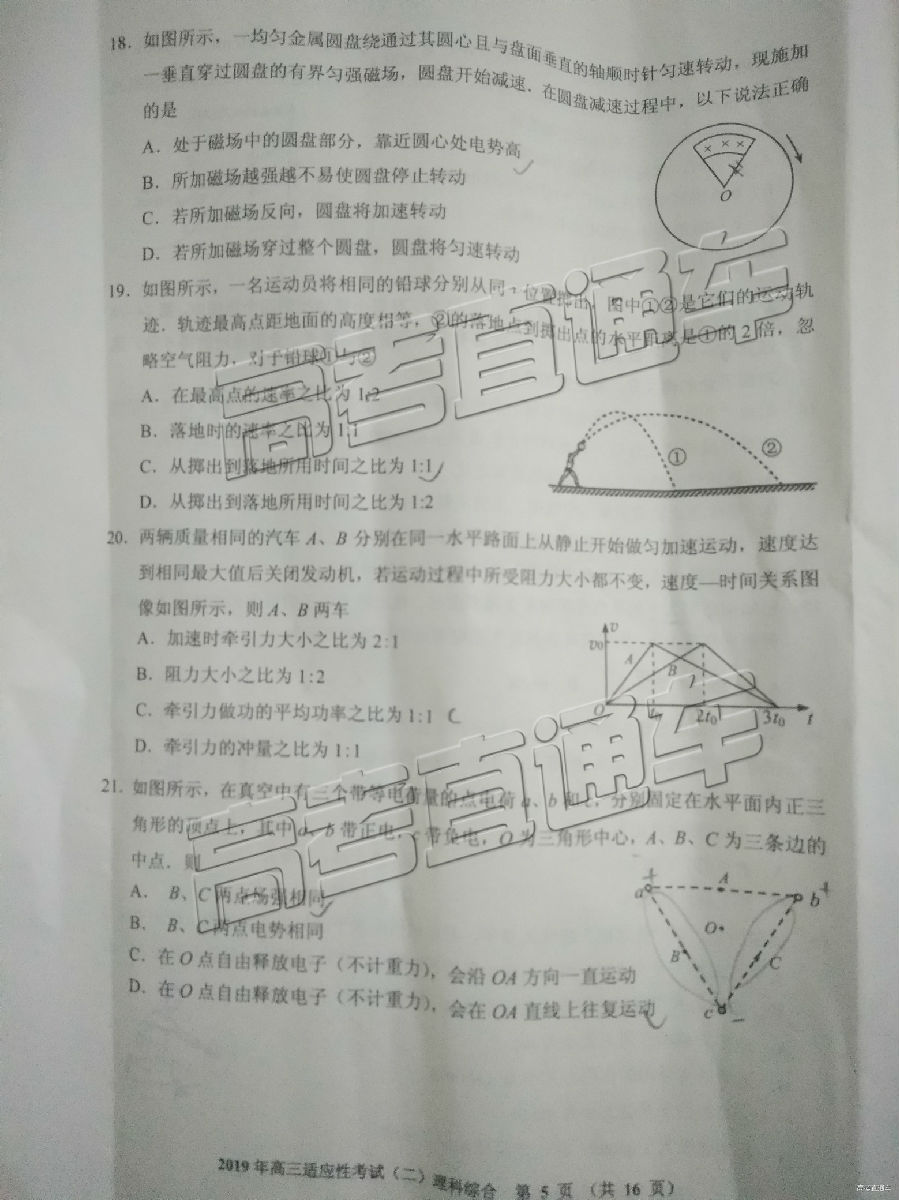 18．如图所示，一均匀金属圆盘绕通过其圆心且与盘面垂直的轴顺时针匀速转动，现施加
一垂直穿过圆盘的有界匀强磁场，圆盘开始减速．在圆盘减速过程中，以下说法正确
的是
A．处于磁场中的圆盘部分，靠近圆心处电势高
B．所加磁场越强越不易使圆盘停止转动
C．若所加磁场反向，圆盘将加速转动
D．若所加磁场穿过整个圆盘，圆盘将匀速转动
O
19．如图所示，一名运动员将相同的铅球分别从同一位置掷出，图中①②是它们的运动轨
迹．轨迹最高点距地面的高度相等，②的落地点到掷出点的水平距离是①的 2 倍，忽
略空气阻力，对于铅球①与②
A．在最高点的速率之比为 1:2
B．落地时的速率之比为 1:1
C．从掷出到落地所用时间之比为 1:1
D．从掷出到落地所用时间之比为 1:2
① ②
20．两辆质量相同的汽车 A、B 分别在同一水平路面上从静止开始做匀加速运动，速度达
到相同最大值后关闭发动机，若运动过程中所受阻力大小都不变，速度—时间关系图
像如图所示，则 A、B 两车
A．加速时牵引力大小之比为 2:1
B．阻力大小之比为 1:2
C．牵引力做功的平均功率之比为 1:1
D．牵引力的冲量之比为 1:1
v
v0
A B
O 2t0 3t0 t
21．如图所示，在真空中有三个带等电荷量的点电荷 a、b 和 c，分别固定在水平面内正三
角形的顶点上，其中 a、b 带正电，c 带负电，O 为三角形中心，A、B、C 为三条边的
中点．则
A． B、C 两点场强相同
B． B、C 两点电势相同
C．在 O 点自由释放电子（不计重力），会沿 OA 方向一直运动
D．在 O 点自由释放电子（不计重力），会在 OA 直线上往复运动
a A b
O
B C
c
2019 年高三适应性考试（二）理科综合 第 5 页 （共 16 页）
高考直通车
高考直通车